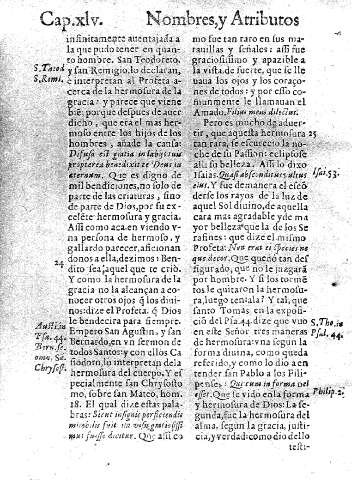 Cap.xlv.
Nombres, y Atributos
infinitamente auentajada a
la que pudo tener en quan-
to hombre. San Teodoreto,
y san Remigio, lo declaran,
e interpretan al Profeta a-
cerca de la hermosura de la
gracia: y parece que viene
biē: porque despues de auer
dicho, que era el mas her-
moso entre los hijos de los
hombres, añade la causa:
Difusa est gratia in labijs tuis
propterea benedixit te Deus in
æternum. Que es digno de
mil bendiciones, no solo de
parte de las criaturas, sino
de parte de Dios, por su ex-
celēte hermosura y gracia.
Assi como aca en viendo v-
na persona de hermoso, y
gallardo parecer, aficionan
donos a ella, dezimos: Ben-
dito sea aquel que te criò.
Y como la hermosura de la
gracia no la alcançan a co-
nocer otros ojos q̃ los diui-
nos: dize el Profeta, q̃ Dios
le bendecira para siempre.
Empero San Agustin, y san
Bernardo, en vn sermon de
todos Santos: y con ellos Ca
siodoro, lo interpretan de la
hermosura del cuerpo. Y es
pecialmente san Chrysosto
mo, sobre san Mateo, hom.
18. El qual dize estas pala-
bras: Sicut insignis perficiendis
fuit in
mus fuisse dicitur. Que assi co
S. Teod
S. Remi.
24
August. in
Psa. 44.
Bern. ser.
omn. Sā.
Chrysost.
mo fue tan raro en sus ma-
rauillas y señales: assi fue
graciosissimo y apazible a
la vista de suerte, que se lle
uaua los ojos y los coraço
nes de todos: y por esso co-
munmente le llamauan el
Amado, Filius meus dilectus.
Pero es mucho de aduer-
tir, que aquesta hermosura
tan rara, se escurecio la no-
che de su Passion: eclipsose
alli su belleza. Assi lo dixo
Isaias: Quasi absconditus vultus
eius. Y fue demanera el escō
derse los rayos de la luz de
aquel Sol diuino, de aquella
cara mas agradable y de ma
yor belleza que la de los Se
rafines: que dize el mismo
Profeta: Non erat ei species ne
que decor. Que quedò tan des
figurado, que no le juzgarà
por hombre. Y si los tormē
tos le quitaron la hermosu-
ra, luego tenia la? Y tal, que
santo Tomas, en la exposi-
cion del Psa. 44. dize que vuo
en este Señor tres maneras
de hermosura: vna segun la
forma diuina, como queda
referido, y como lo dio a en
tender san Pablo a los Fili-
penses: Qui cum in forma Dei
esset. Que se vido en la forma
y hermosura de Dios: La se
gunda, fue la hermosura del
alma, segun la gracia, justi-
cia, y verdad: como dio dello
testi-
25
Isai. 53.
S. Tho. in
Psal. 44.
Philip. 2.